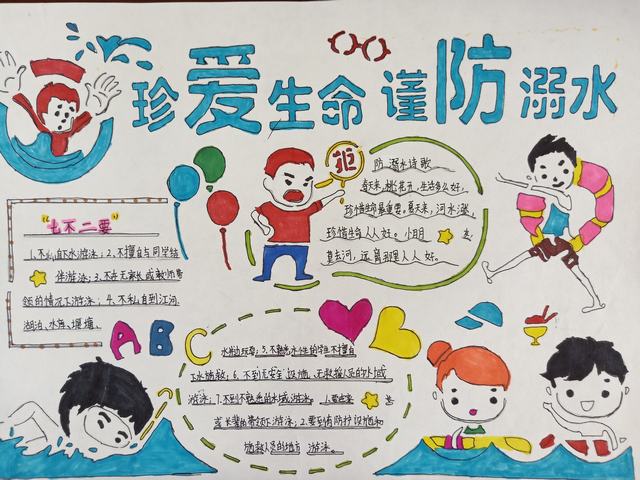 珍爱生命 谨防溺水
"七不二要"
1.不私自下水游泳;2.不擅自与同学结
伴游泳;3.不在无家长或教师带
领的情况下游泳;4.不私自到江河、
湖泊、水氹、堰塘、
拒
防溺水诗歌
春天来,桃花开,生活多么好,
珍惜生命最重要。夏天来,河水涨,
珍惜生命人人好。小朋
莫去河,远离那里人人好。
ABC
水渠边玩耍;5.不熟悉水性的学生不擅自
下水施救;6.不到无安全设施、无救援人员的水域
游泳;7.不到不熟悉的水域游泳。1.要在家
或长辈的带领下游泳;2.要到有防护设施和
施救人员的地方游泳。